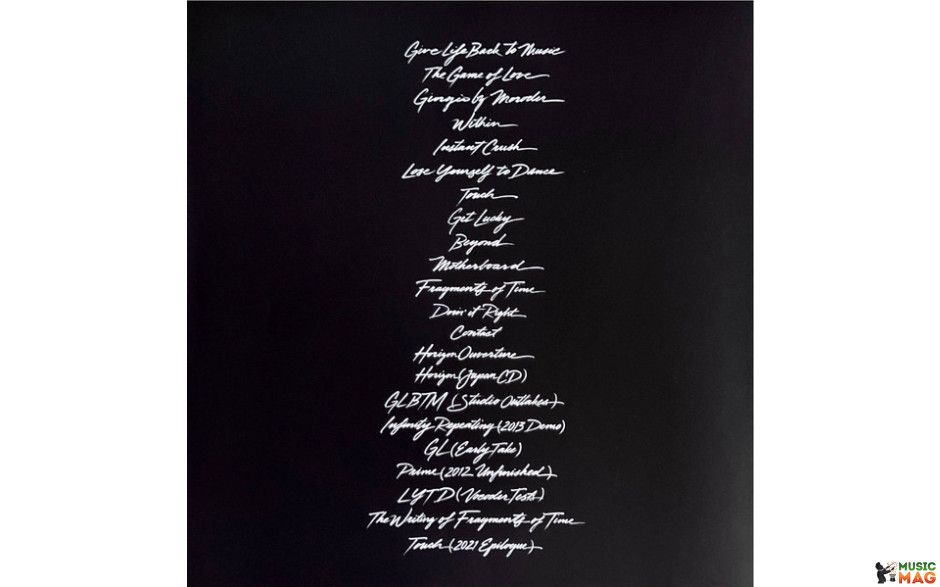 Give Life Back to Music
The Game of Love
Giorgio by Moroder
Within
Instant Crush
Lose Yourself to Dance
Touch
Get Lucky
Beyond
Motherboard
Fragments of Time
Doin' it Right
Contact
Horizon Ouverture
Horizon (Japan CD)
GLBTM (Studio Outtakes)
Infinity Repeating (2013 Demo)
GL (Early Take)
Prime (2012 Unfinished)
LYTD (Vocoder Tests)
The Writing of Fragments of Time
Touch (2021 Epilogue)
MUSIC
MAG